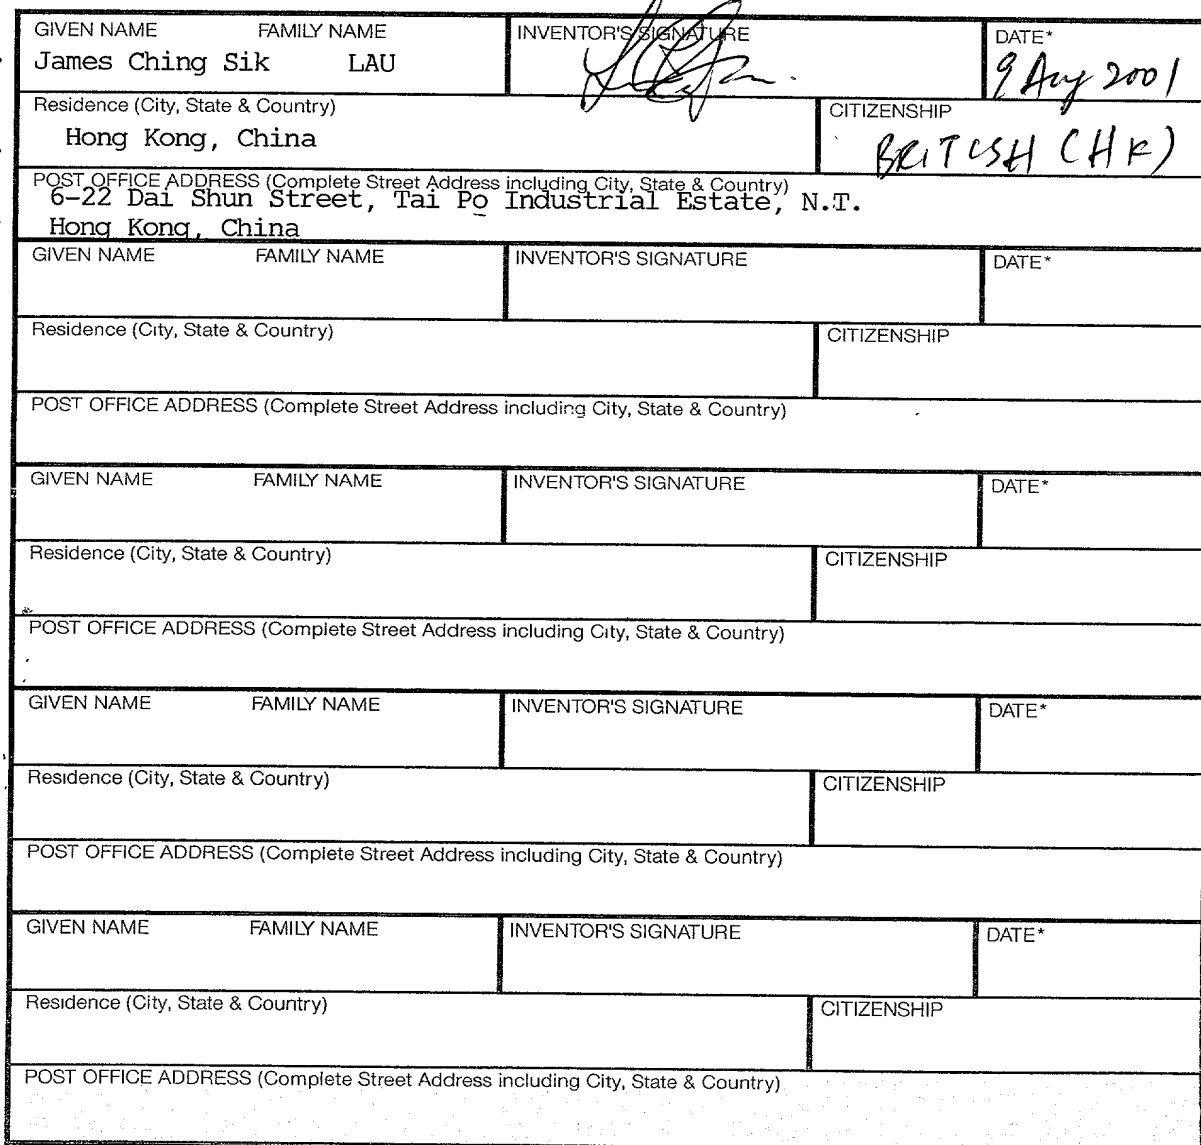 GIVEN NAME FAMILY NAME INVENTOR'S SIGNATURE DATE*
James Ching Sik LAU 9 Aug 2001
Residence (City, State & Country) CITIZENSHIP
Hong Kong, China BRITISH (HK)
POST OFFICE ADDRESS (Complete Street Address including City, State & Country)
6-22 Dai Shun Street, Tai Po Industrial Estate, N.T.
Hong Kong, China
GIVEN NAME FAMILY NAME INVENTOR'S SIGNATURE DATE*
Residence (City, State & Country) CITIZENSHIP
POST OFFICE ADDRESS (Complete Street Address including City, State & Country)
GIVEN NAME FAMILY NAME INVENTOR'S SIGNATURE DATE*
Residence (City, State & Country) CITIZENSHIP
POST OFFICE ADDRESS (Complete Street Address including City, State & Country)
GIVEN NAME FAMILY NAME INVENTOR'S SIGNATURE DATE*
Residence (City, State & Country) CITIZENSHIP
POST OFFICE ADDRESS (Complete Street Address including City, State & Country)
GIVEN NAME FAMILY NAME INVENTOR'S SIGNATURE DATE*
Residence (City, State & Country) CITIZENSHIP
POST OFFICE ADDRESS (Complete Street Address including City, State & Country)